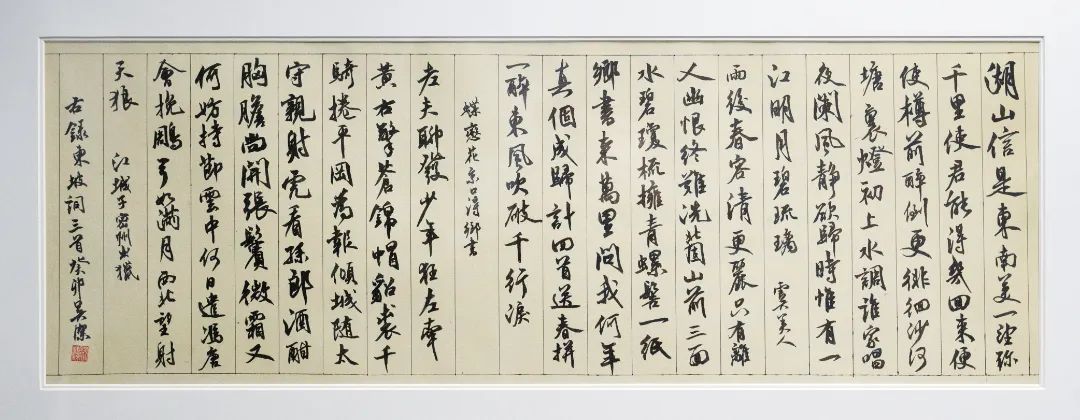 湖山信是東南美一望弥
千里使君能得幾回來便
使樽前醉倒更徘徊沙河
塘裏燈初上水調誰家唱
夜闌風静欲歸時惟有一
江明月碧琉璃 虞美人
雨後春容清更麗只有離
人幽恨終難洗北固山前三面
水碧瓊梳擁青螺髻一紙
鄉書來萬里問我何年
真個成歸計回首送春拼
一醉東風吹破千行淚
蝶戀花京口得鄉書
老夫聊發少年狂左牽
黄右擎蒼錦帽貂裘千
騎捲平岡為報傾城隨太
守親射虎看孫郎酒酣
胸膽尚開張鬢微霜又
何妨持節雲中何日遣馮唐
會挽鵰弓如滿月西北望射
天狼 江城子密州出獵
右録東坡詞三首癸卯吴